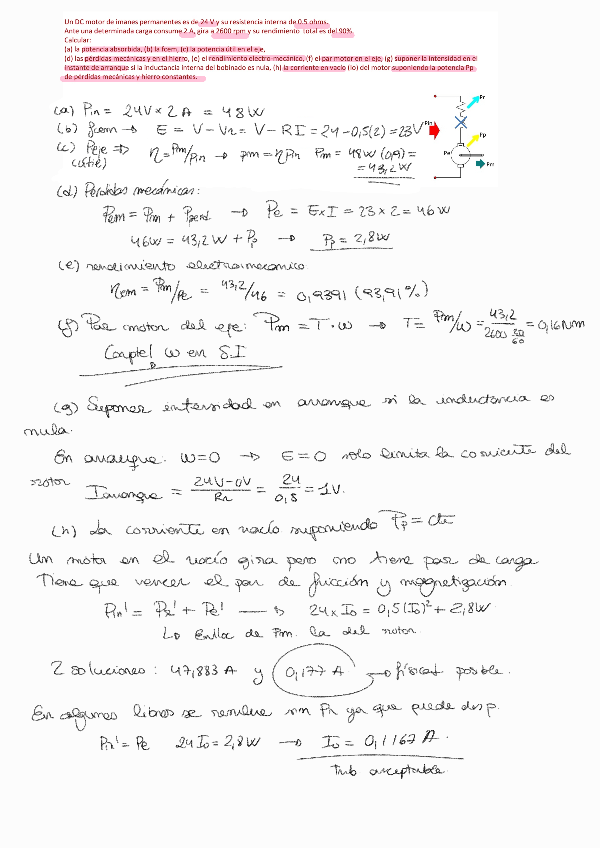 Un DC motor de imanes permanentes es de 24 V y su resistencia interna de 0.5 ohms.
Ante una determinada carga consume 2 A, gira a 2600 rpm y su rendimiento total es del 90%.
Calcular:
(a) la potencia absorbida, (b) la fcem, (c) la potencia útil en el eje,
(d) las pérdidas mecánicas y en el hierro, (e) el rendimiento electro-mecánico, (f) el par motor en el eje, (g) suponer la intensidad en el
instante de arranque si la inductancia interna del bobinado es nula, (h) la corriente en vacío (Io) del motor suponiendo la potencia Pp
de pérdidas mecánicas y hierro constantes.
(a) Pin = 24V × 2 A = 48 W
(b) fcem → E = V - Vr = V - RI = 24 - 0,5(2) = 23V
(c) Peje ⇒ η = Pm/Pin → pm = η Pin Pm = 48W (0,9) =
(útil) = 43,2 W
Pr
Pin
Pp
Pe
Pm
(d) Pérdidas mecánicas:
Pem = Pm + Pperd → Pe = E×I = 23 × 2 = 46 W
46W = 43,2 W + Pp → Pp = 2,8W
(e) rendimiento electromecanico
ηem = Pm/Pe = 43,2/46 = 0,9391 (93,91%)
(f) Par motor del eje: Pm = T · ω → T = Pm/ω = 43,2 / 2600 = 0,16 Nm
ω en S.I
(g) Suponer intensidad en arranque si la inductancia es
nula.
En arranque: ω=0 → E=0 solo limita la corriente del
motor
Iarranque = 24V-0V / Rr = 24 / 0,5 = V.
(h) La corriente en vacío suponiendo Pp = cte
Un motor en el vacío gira pero no tiene par de carga
Tiene que vencer el par de fricción y magnetización.
Pin' = Pr' + Pe' → 24 × Io = 0,5(Io)² + 2,8W
la del rotor
2 soluciones: 47,883 A y 0,177 A → posible.
En algunos libros se resuelve sin Pr ya que puede desp.
Pin' = Pe 24 Io = 2,8 W → Io = 0,1167 A.
Tmb aceptable